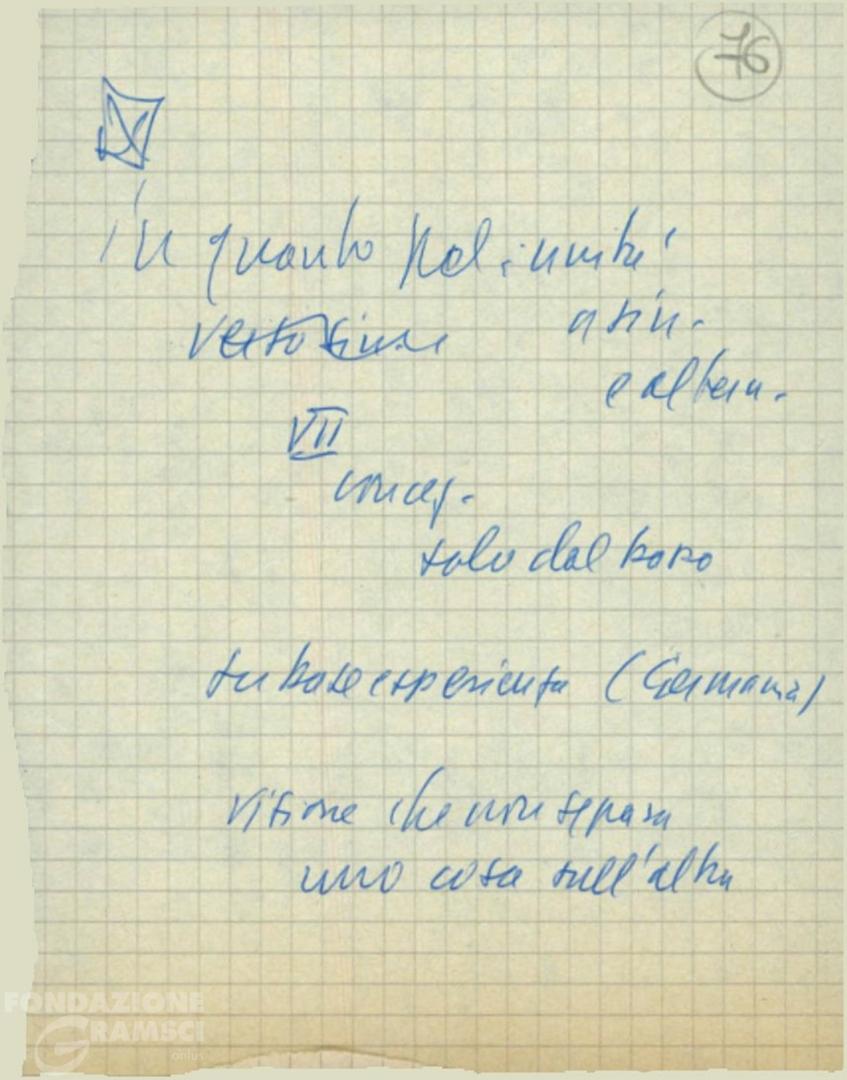 76
X
in quanto pol. unità
a sin.
e altern.
VII
concez.
solo dal basso
su base esperienza (Germania)
visione che non separa
una cosa dall'altra
FONDAZIONE
GRAMSCI
onlus